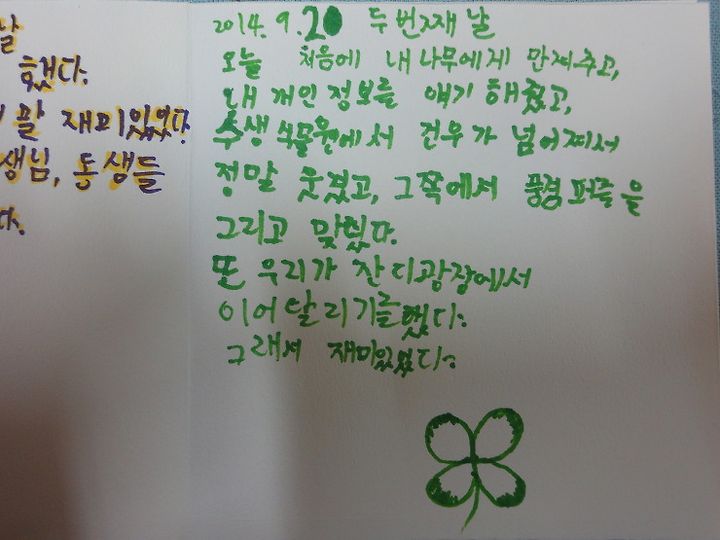 날
했다.
팔 재미있었다
생님, 동생들
다.
2014. 9. 20 두번째 날
오늘 처음에 내 나무에게 만져주고,
내 개인정보를 얘기 해줬고,
수생식물원에서 건우가 넘어져서
정말 웃겼고, 그쪽에서 풍경퍼즐을
그리고 맞췄다.
또 우리가 잔디광장에서
이어달리기를했다.
그래서 재미있었다.